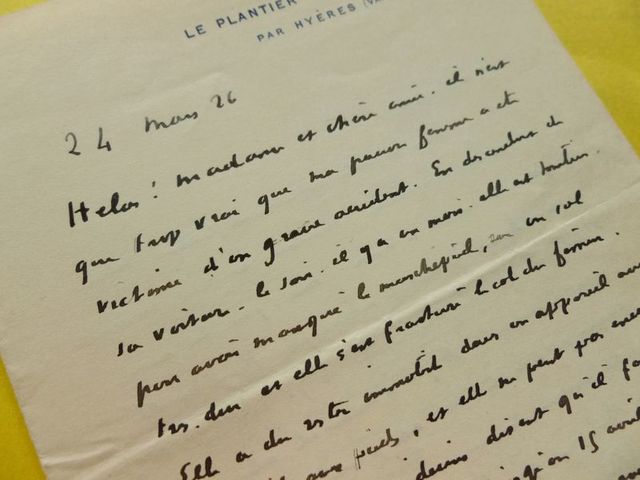 LE PLANTIER
PAR HYÈRES (VA
24 mars 26
Hélas! madame et chère amie. il n'est
que trop vrai que ma pauvre femme a été
victime d'un grave accident. En descendant de
sa voiture. le soir. il y a un mois. elle est tombée.
pour avoir manqué le marchepied, sur un sol
très dur et elle s'est fracturé le col du fémur.
Elle a du rester immobile dans un appareil
pieds, et elle ne peut pas
disent qu'il
15 avril